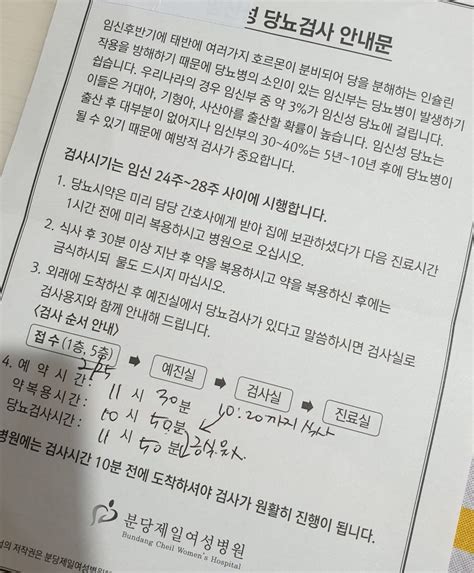 성 당뇨검사 안내문
임신후반기에 태반에 여러가지 호르몬이 분비되어 당을 분해하는 인슐린
작용을 방해하기 때문에 당뇨병의 소인이 있는 임신부는 당뇨병이 발생하기
쉽습니다. 우리나라의 경우 임신부 중 약 3%가 임신성 당뇨에 걸립니다.
이들은 거대아, 기형아, 사산아를 출산할 확률이 높습니다. 임신성 당뇨는
출산 후 대부분이 없어지나 임신부의 30~40%는 5년~10년 후에 당뇨병이
될 수 있기 때문에 예방적 검사가 중요합니다.
검사시기는 임신 24주~28주 사이에 시행합니다.
1. 당뇨시약은 미리 담당 간호사에게 받아 집에 보관하셨다가 다음 진료시간
1시간 전에 미리 복용하시고 병원으로 오십시오.
2. 식사 후 30분 이상 지난 후 약을 복용하시고 약을 복용하신 후에는
금식하시되 물도 드시지 마십시오.
3. 외래에 도착하신 후 예진실에서 당뇨검사가 있다고 말씀하시면 검사실로
검사용지와 함께 안내해 드립니다.
<검사 순서 안내>
접수(1층, 5층) ➡ 예진실 ➡ 검사실 ➡ 진료실
4. 예약시간: 2/25 11시 30분
약복용시간: 10시 50분 10:20까지 식사
당뇨검사시간: 11시 50분 금식
병원에는 검사시간 10분 전에 도착하셔야 검사가 원활히 진행이 됩니다.
분당제일여성병원
Bundang Cheil Women's Hospital
의 저작권은 분당제일여성병원